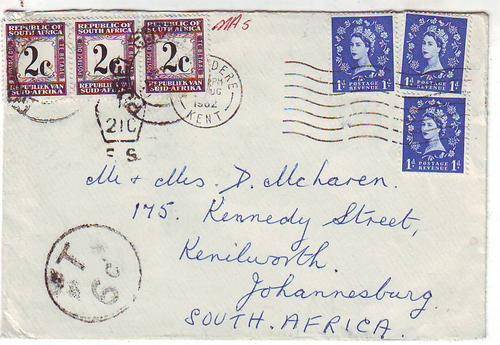 REPUBLIC OF SOUTH AFRICA REPUBLIC OF SOUTH AFRICA REPUBLIC OF SOUTH AFRICA
2c 2c 2c
REPUBLIEK VAN SUID-AFRIKA REPUBLIEK VAN SUID-AFRIKA REPUBLIEK VAN SUID-AFRIKA
1D 1D
POSTAGE REVENUE POSTAGE REVENUE
1D POSTAGE REVENUE 1D
DERE
PM
AUG
1962
KENT
21C
Mr + Mrs. D. McLaren.
175. Kennedy Street,
Kenilworth.
Johannesburg.
SOUTH. AFRICA.
T
6c